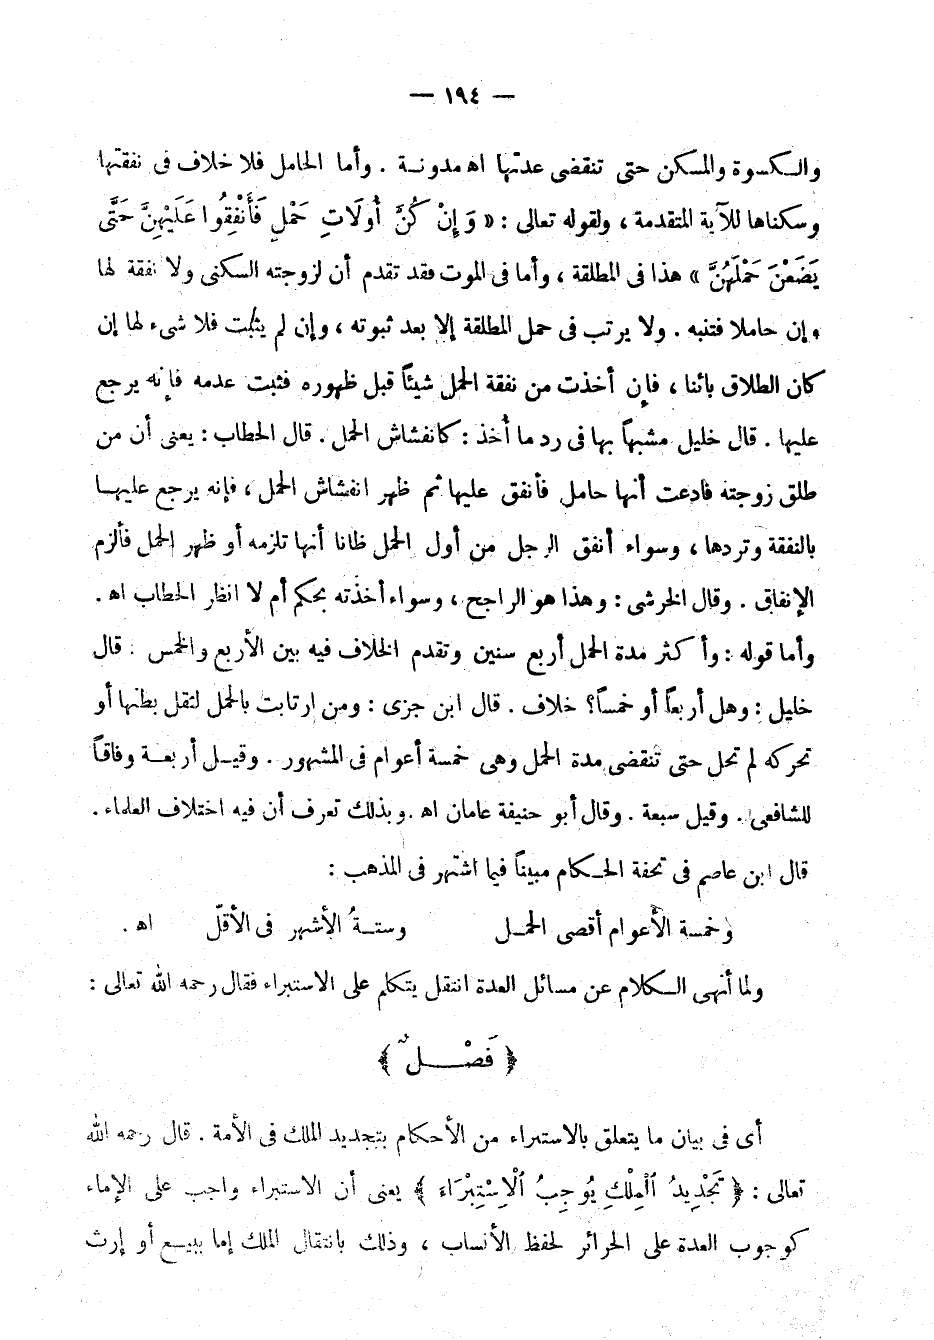 — ١٩٤ —
والكسوة والمسكن حتى تنقضى عدتها اه مدونة . وأما الحامل فلا خلاف فى نفقتها
وسكناها للآية المتقدمة ، ولقوله تعالى : « وَإِنْ كُنَّ أُولَاتِ حَمْلٍ فَأَنْفِقُوا عَلَيْهِنَّ حَتَّى
يَضَعْنَ حَمْلَهُنَّ » هذا فى المطلقة ، وأما فى الموت فقد تقدم أن لزوجته السكنى ولا نفقة لها
وإن حاملا فتنبه . ولا يرتب فى حمل المطلقة إلا بعد ثبوته ، وإن لم يثبت فلا شىء لها إن
كان الطلاق بائنا ، فإن أخذت من نفقة الحمل شيئاً قبل ظهوره فثبت عدمه فإنه يرجع
عليها . قال خليل مشبهاً بها فى رد ما أُخذ : كانفشاش الحمل . قال الحطاب : يعنى أن من
طلق زوجته فادعت أنها حامل فأنفق عليها ثم ظهر انفشاش الحمل ، فإنه يرجع عليها
بالنفقة وتردها ، وسواء أنفق الرجل من أول الحمل ظانا أنها تلزمه أو ظهر الحمل فألزم
الإنفاق . وقال الخرشى : وهذا هو الراجح ، وسواء أخذته بحكم أم لا انظر الحطاب اه .
وأما قوله : وأكثر مدة الحمل أربع سنين وتقدم الخلاف فيه بين الأربع والخمس . قال
خليل : وهل أربعاً أو خمساً؟ خلاف . قال ابن جزى : ومن ارتابت بالحمل لثقل بطنها أو
تحركه لم تحل حتى تنقضى مدة الحمل وهى خمسة أعوام فى المشهور . وقيل أربعة وفاقاً
للشافعى . وقيل سبعة . وقال أبو حنيفة عامان اه . وبذلك تعرف أن فيه اختلاف العلماء .
قال ابن عاصم فى تحفة الحكام مبيناً فيما اشتهر فى المذهب :
وخمسة الأعوام أقصى الحمل وستةُ الأشهر فى الأقلّ اه .
ولما أنهى الكلام عن مسائل العدة انتقل يتكلم على الاستبراء فقال رحمه الله تعالى :
﴿ فَصْلٌ ﴾
أى فى بيان ما يتعلق بالاستبراء من الأحكام بتجديد الملك فى الأمة . قال رحمه الله
تعالى : ﴿ تَجْدِيدُ ٱلْمِلْكِ يُوجِبُ ٱلْاِسْتِبْرَاءَ ﴾ يعنى أن الاستبراء واجب على الإماء
كوجوب العدة على الحرائر لحفظ الأنساب ، وذلك بانتقال الملك إما ببيع أو إرث